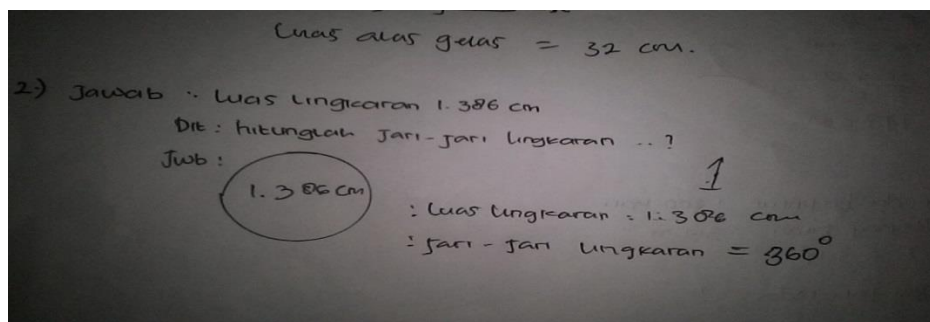 Luas alas gelas = 32 cm.
2.) Jawab : Luas lingkaran 1.386 cm
Dit : hitunglah Jari-Jari lingkaran .. ?
Jwb :
1.386 cm
1
: Luas lingkaran : 1.386 cm
: Jari-Jari lingkaran = 360°